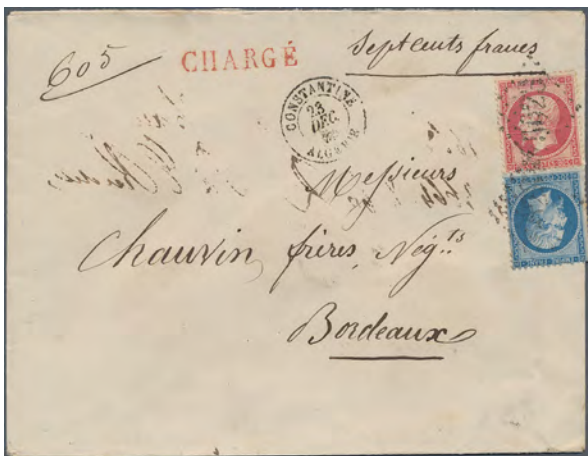 605
CHARGÉ
Sept cents francs
CONSTANTINE
23
DEC.
ALGERIE
Messieurs
Chauvin frères, Nég.ts
Bordeaux